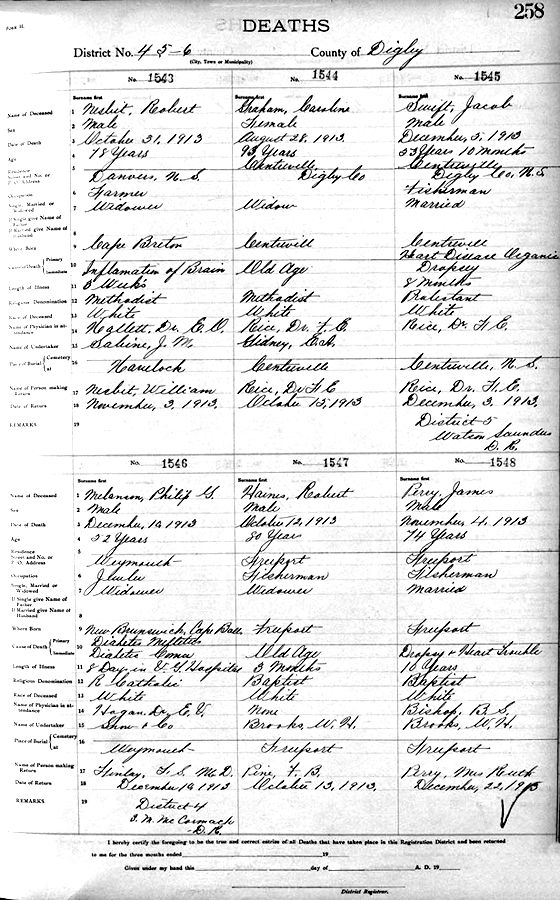 FORM H.
258
DEATHS
District No. 4 5-6 County of Digby
(City, Town or Municipality)
No. 1543 No. 1544 No. 1545
Surname first Surname first Surname first
Name of Deceased 1 Nesbit, Robert Graham, Caroline Swift, Jacob
Sex 2 Male Female Male
Date of Death 3 October 31, 1913 August 28, 1913. December, 5, 1913
Age 4 78 Years 93 Years 53 Years 10 months
Residence Street and No. or P. O. Address 5 Danvers, N. S Centreville, Digby Co Centreville Digby Co, N. S
Occupation 6 Farmer Fisherman
Single, Married or Widowed 7 Widower Widow Married
If Single give Name of Father
If Married give Name of Husband 8
Where Born 9 Cape Breton Centrevill Centrevill
Cause of Death Primary Immediate 10 Inflamation of Brain Old Age Heart Disease Organic Dropsey
Length of Illness 11 3 Weeks 8 Months
Religious Denomination 12 Methodist Methodist Protestant
Race of Deceased 13 White White White
Name of Physician in attendance 14 Hallett, Dr. E. O. Rice, Dr. F. E. Rice, Dr F. E.
Name of Undertaker 15 Sabine, J. M. Gidney,
Place of Burial Cemetery at 16 Havelock Centreville Centreville, N. S.
Name of Person making Return 17 Nesbit, William Rice, Dr F E Rice, Dr. F. E.
Date of Return 18 November, 3, 1913. October 15, 1913 December, 3, 1913.
REMARKS 19 District 5
Watson Saunders
D. R.
No. 1546 No. 1547 No. 1548
Surname first Surname first Surname first
Name of Deceased 1 Melanson, Philip G. Haines, Robert Perry, James
Sex 2 Male Male Male
Date of Death 3 December, 10, 1913 October 12, 1913 November, 4, 1913
Age 4 52 Years 80 Years 74 Years
Residence Street and No. or P. O. Address 5 Weymouth Freeport Freeport
Occupation 6 Jeweler Fisherman Fisherman
Single, Married or Widowed 7 Widower Widower Married
If Single give Name of Father
If Married give Name of Husband 8
Where Born 9 New Brunswick, Cape Freeport Freeport
Cause of Death Primary Immediate 10 Diabetes Mellitus Diabetic Coma Old Age Dropsy & Heart Trouble
Length of Illness 11 8 Day in V. G. Hospital 3 Months 10 Years
Religious Denomination 12 R. Catholic Baptist Baptist
Race of Deceased 13 White White White
Name of Physician in attendance 14 Hogan, Dr, E. V. None Bishop, B. S.
Name of Undertaker 15 Snow & Co Brooks, W. H. Brooks, W. H.
Place of Burial Cemetery at 16 Weymouth Freeport Freeport
Name of Person making Return 17 Finlay, F. S. M. D. Pine, F. B. Perry, Mrs Ruth
Date of Return 18 December 10, 1913 October 13, 1913. December, 22, 1913
REMARKS 19 District 4
J. M. McCormack
D. R.
I hereby certify the foregoing to be the true and correct entries of all Deaths that have taken place in this Registration District and been returned
to me for the three months ended 19
Given under my hand this day of A. D. 19
District Registrar.